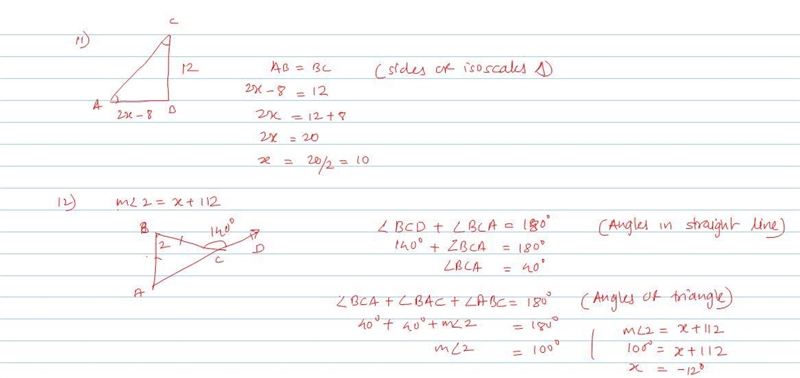 11)
C
12
A
2x-8
B
AB = BC (sides of isoscales Δ)
2x-8 = 12
2x = 12+8
2x = 20
x = 20/2 = 10
12) m∠2 = x+112
B
2
140°
D
C
A
∠BCD + ∠BCA = 180° (Angles in straight line)
140° + ∠BCA = 180°
∠BCA = 40°
∠BCA + ∠BAC + ∠ABC = 180° (Angles of triangle)
40° + 40° + m∠2 = 180°
m∠2 = 100°
m∠2 = x+112
100° = x+112
x = -12°